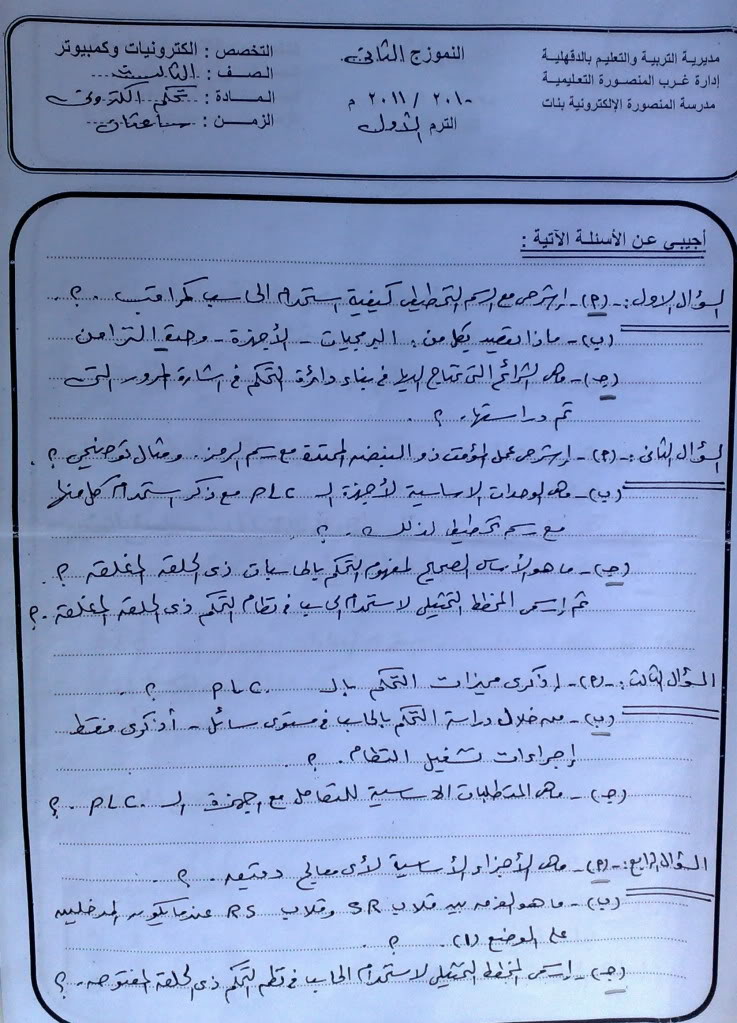 مديرية التربية والتعليم بالدقهلية
إدارة غرب المنصورة التعليمية
مدرسة المنصورة الإلكترونية بنات
النموزج الثانى
٢٠١٠ / ٢٠١١ م
الترم الأول
التخصص : الكترونيات وكمبيوتر
الصف : الثالث
المادة : تحكم الكترونى
الزمن : ساعتان
أجيبى عن الأسئلة الآتية :
السؤال الاول :- (م) - إشرحى مع الرسم التخطيطى كيفية استخدام الحاسب كمراقب . ؟
(ب) - ماذا نقصد بكل من : البرمجيات - الأجهزة - وحدة التزامن
(جـ) - ماهى الشرائح التى تحتاج اليها فى بناء دائرة التحكم فى اشارة المرور التى
تم دراستها . ؟
السؤال الثانى :- (م) - إشرحى عمل المؤقت ذو النبضه الممتدة مع رسم الرمز . ومثال توضيحى ؟
(ب) - ماهى الوحدات الاساسية لأجهزة الـ PLC مع ذكر استخدام كل منها
مع رسم تخطيطى لذلك . ؟
(جـ) - ما هو الأساس الصحيح لمفهوم التحكم بالحاسبات ذى الحلقه المغلقة ؟
ثم إرسمى المخطط التمثيلى لاستخدام الحاسب فى نظام التحكم ذى الحلقه المغلقة . ؟
السؤال الثالث :- (م) - إذكرى مميزات التحكم بالـ PLC . ؟
(ب) - من خلال دراسة التحكم بالحاسب فى مستوى سائل - أذكرى فقط
إجراءات تشغيل النظام . ؟
(جـ) - ماهى المتطلبات الاساسية للتعامل مع اجهزة الـ PLC . ؟
السؤال الرابع :- (م) - ماهى الأجزاء الأساسية لأى معالج دقيق . ؟
(ب) - ما هو الفرق بين قلاب SR وقلاب RS عندما يكون المدخلين
على الوضع (1) . ؟
(جـ) - إرسمى المخطط التمثيلى لاستخدام الحاسب فى نظم التحكم ذى الحلقه المفتوحه . ؟